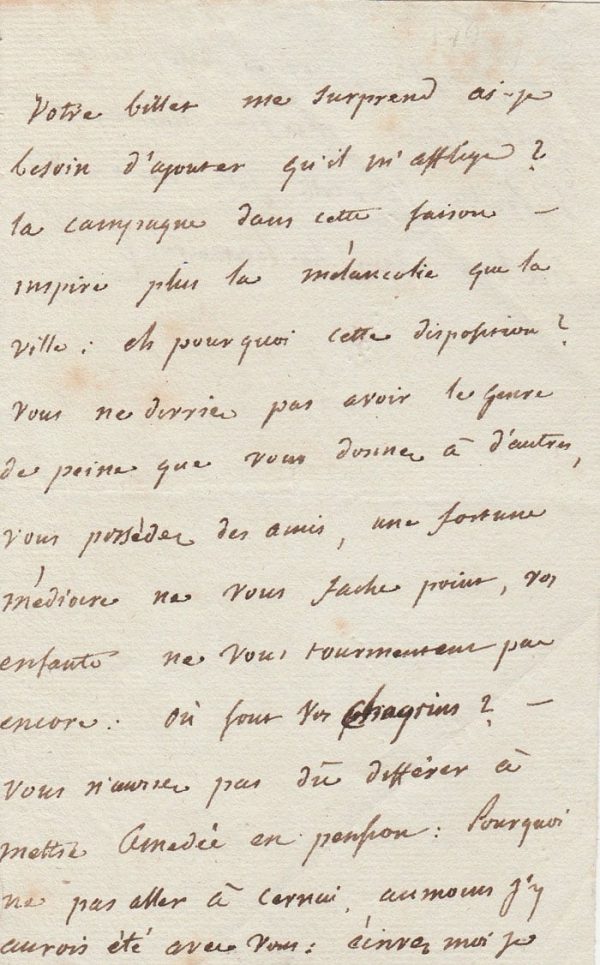 Votre billet me surprend ai-je
besoin d'ajouter qu'il m'afflige ?
la campagne dans cette saison –
inspire plus la mélancolie que la
ville : eh pourquoi cette disposition ?
vous ne devriez pas avoir le genre
de peine que vous donnez à d'autres,
vous possédez des amis, une fortune
médiocre ne vous fache point, vos
enfants ne vous tourmentent pas
encore : où sont vos chagrins ? –
vous n'auriez pas dû différer à
mettre Amedée en pension : Pourquoi
ne pas aller à Cernai, au moins j'y
aurois été avec vous : écrivez moi je